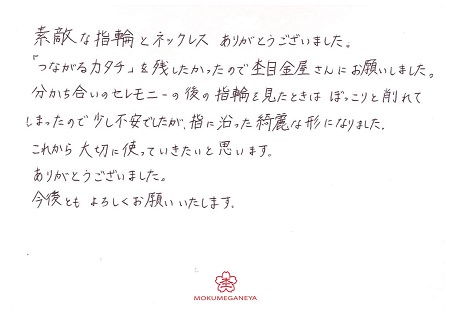 素敵な指輪とネックレス ありがとうございました。
「つながるカタチ」を残したかったので杢目金屋さんにお願いしました。
分かち合いのセレモニーの後の指輪を見たときは ぼっこりと削れて
しまったので少し不安でしたが、指に沿った綺麗な形になりました。
これから大切に使っていきたいと思います。
ありがとうございました。
今後とも よろしくお願いいたします。
杢
MOKUMEGANEYA